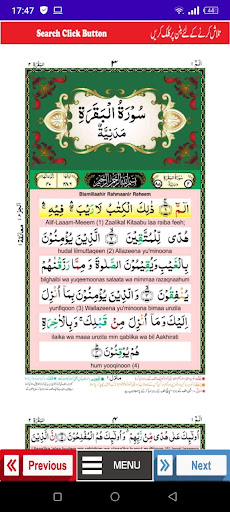 17:47
44
Search Click Button
تلاش کرنے کے لئے بٹن پر کلک کریں
٣
سُوْرَةُ الْبَقَرَةِ
مَدَنِيَّةٌ
بِسْمِ اللّٰهِ الرَّحْمٰنِ الرَّحِيْمِ
Bismillaahir Rahmaanir Raheem
الٓمّٓ ذٰلِكَ الْكِتٰبُ لَا رَيْبَ فِيْهِ
Alif-Laaam-Meeem (1) Zaalikal Kitaabu laa raiba feeh;
هُدًى لِّلْمُتَّقِيْنَ الَّذِيْنَ يُؤْمِنُوْنَ
hudal lilmuttaqeen (2) Allazeena yu'minoona
بِالْغَيْبِ وَيُقِيْمُوْنَ الصَّلٰوةَ وَمِمَّا رَزَقْنٰهُمْ
bilghaibi wa yuqeemoonas salaata wa mimmaa razaqnaahum
يُنْفِقُوْنَ وَالَّذِيْنَ يُؤْمِنُوْنَ بِمَآ اُنْزِلَ
yunfiqoon (3) Wallazeena yu'minoona bimaa unzila
اِلَيْكَ وَمَآ اُنْزِلَ مِنْ قَبْلِكَ وَبِالْاٰخِرَةِ
ilaika wa maaa unzila min qablika wa bil Aakhirati
هُمْ يُوْقِنُوْنَ
hum yooqinoon (4)
اُولٰٓئِكَ عَلٰى هُدًى مِّنْ رَّبِّهِمْ وَاُولٰٓئِكَ هُمُ الْمُفْلِحُوْنَ اِنَّ الَّذِيْنَ
Previous
MENU
Next